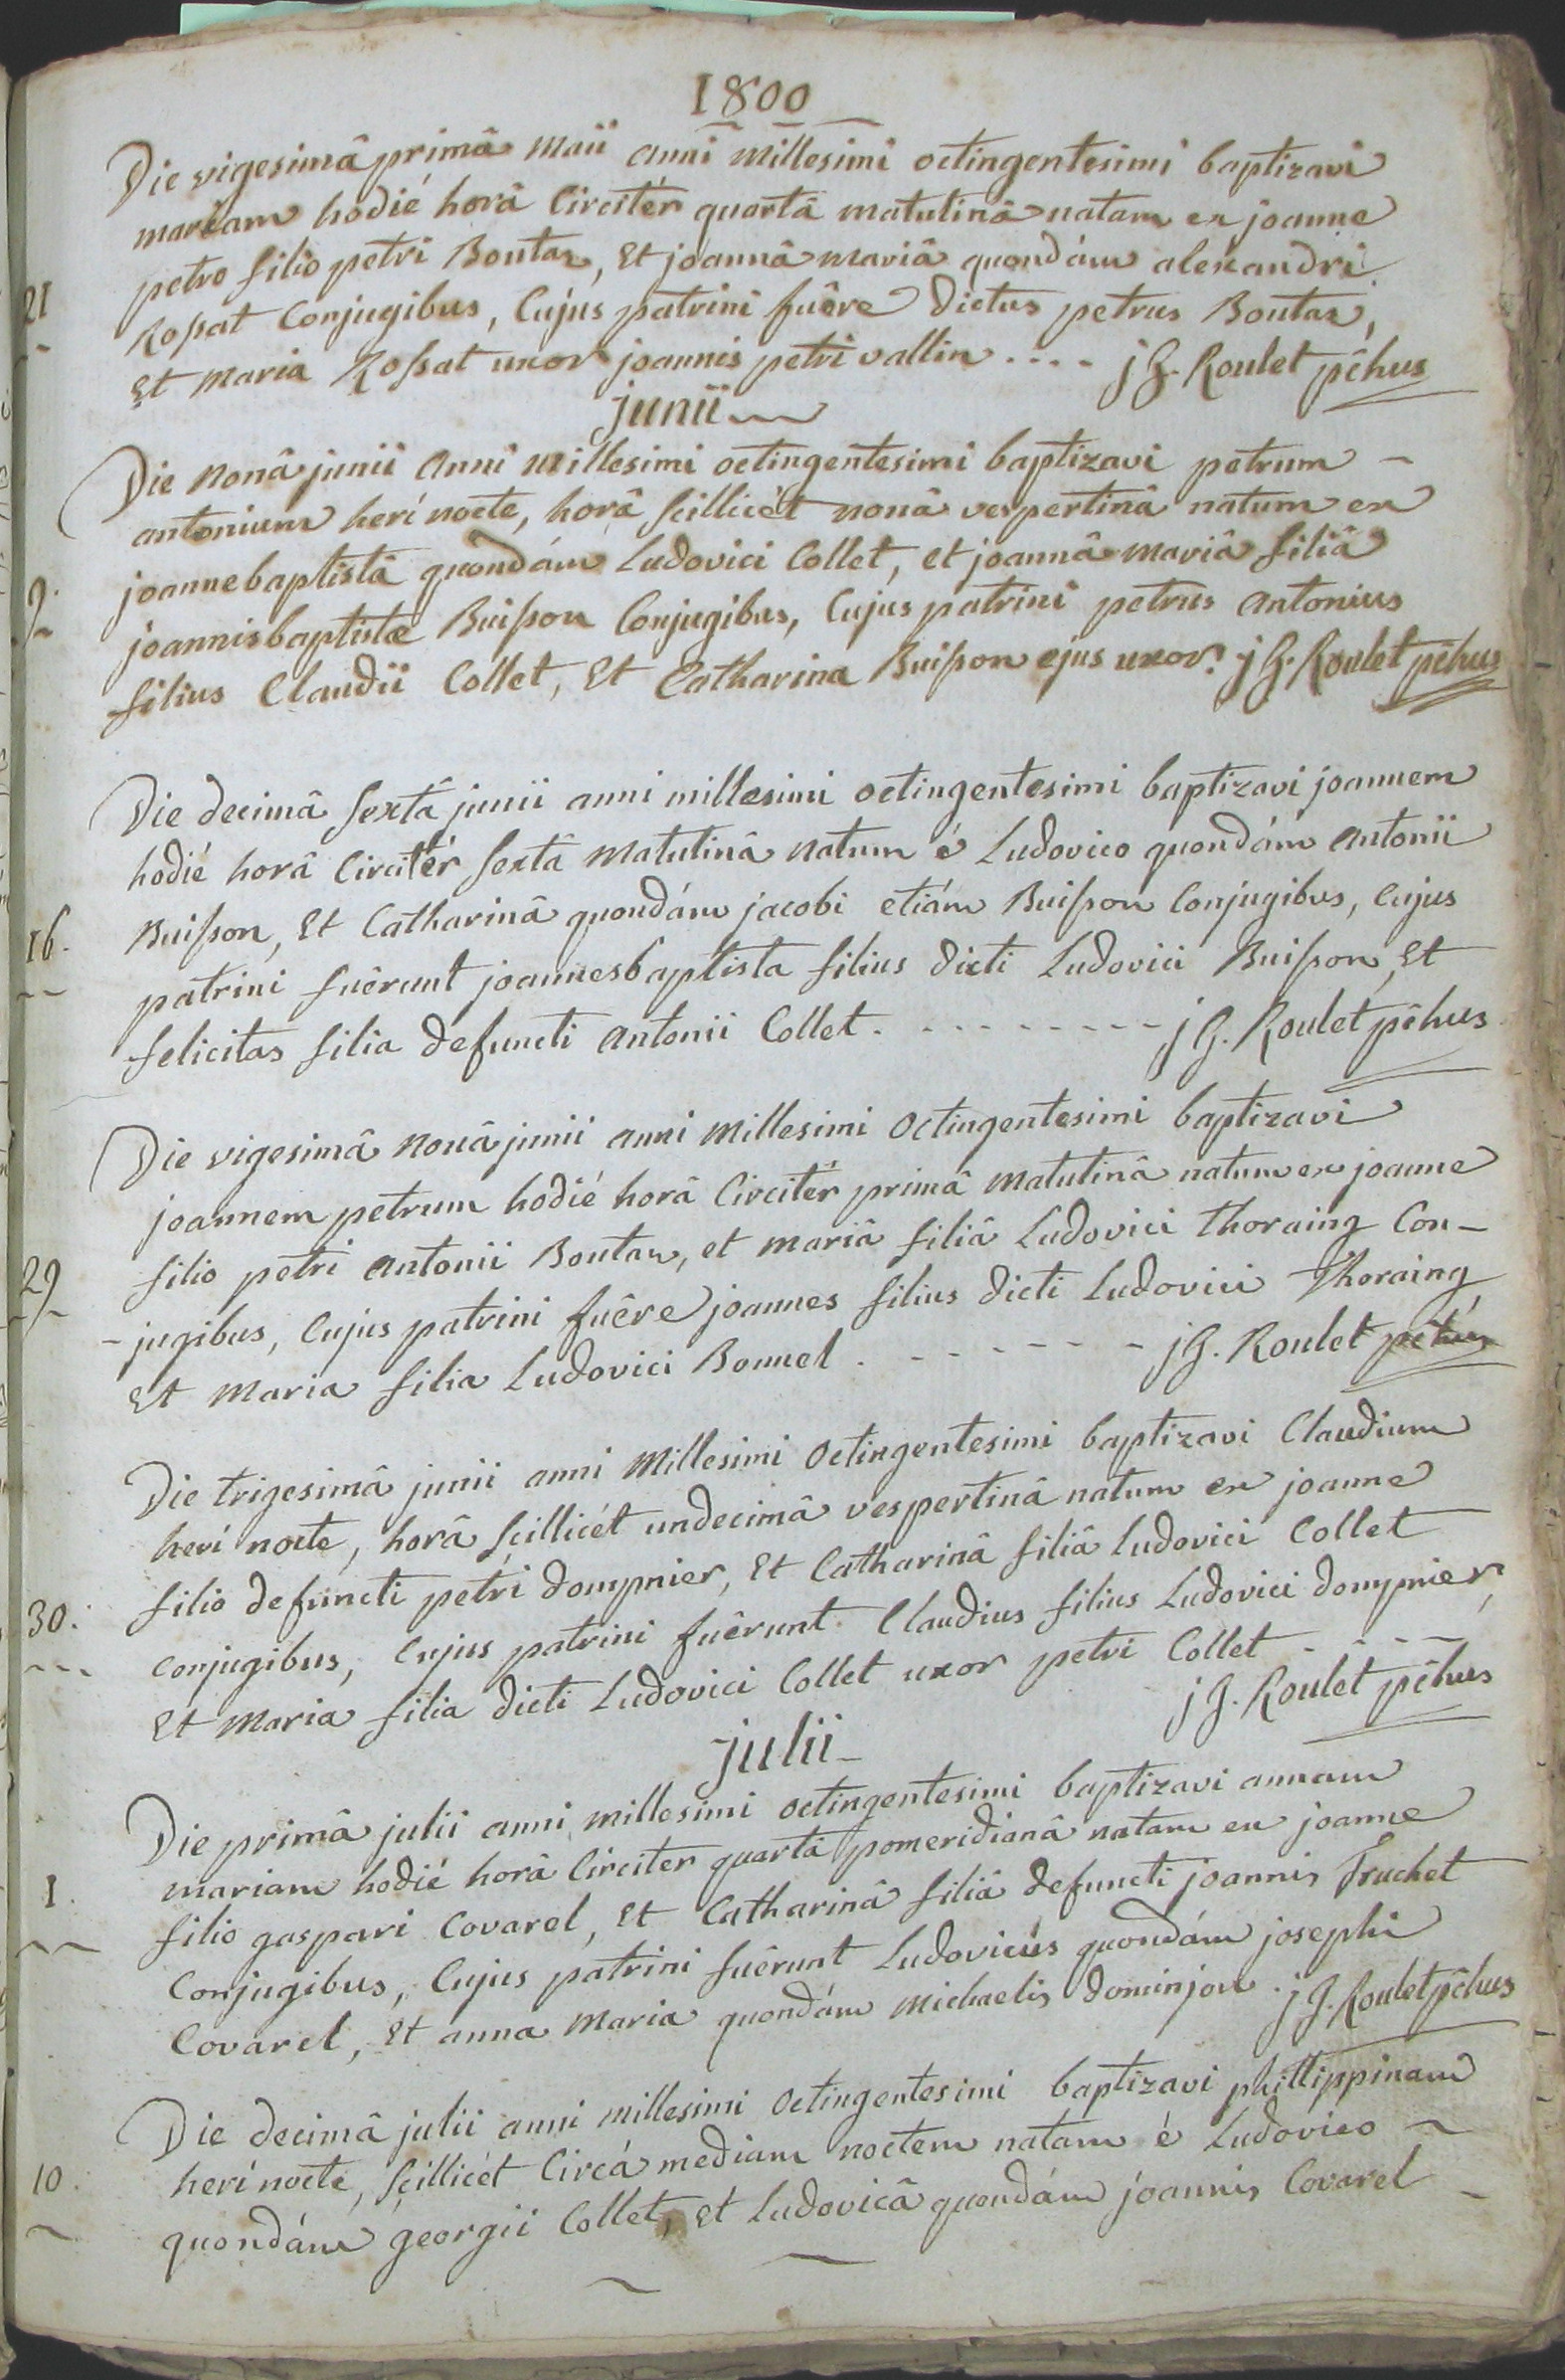 1800
Die vigesimâ primâ maii anni millesimi octingentesimi baptizavi
mariam hodié horâ circitér quartâ matutinâ natam ex joanne
petro filio petri Boutaz, Et joannâ mariâ quondám alexandri
21
Rossat Conjugibus, Cujus patrini fuêre dictus petrus Boutaz,
Et maria Rossat uxor joannis petri vallin .... j G. Roulet
junii
Die nonâ junii anni millesimi octingentesimi baptizavi petrum -
antonium herí nocte, horâ scillicét nonâ vespertinâ natum ex
9.
joannebaptistâ quondám Ludovici Collet, et joannâ mariâ filiâ
joannisbaptistæ Buisson Conjugibus, Cujus patrini petrus antonius
filius Claudii Collet, Et Catharina Buisson ejus uxor. j G. Roulet
Die decimâ sextâ junii anni millesimi octingentesimi baptizavi joannem
hodié horâ Circitér sextâ matutinâ natum é Ludovico quondám antonii
16.
Buisson, Et Catharinâ quondám jacobi etiám Buisson Conjugibus, Cujus
patrini fuêrunt joannesbaptista filius dicti Ludovici Buisson, Et
felicitas filia defuncti antonii Collet. - - - - - - - - - j G. Roulet
Die vigesimâ nonâ junii anni millesimi octingentesimi baptizavi
joannem petrum hodié horâ Circitér primâ matutinâ natum ex joanne
29
filio petri antonii Boutaz, et mariâ filiâ Ludovici thoraing Con-
-jugibus, Cujus patrini fuêre joannes filius dicti Ludovici Thoraing,
Et maria filia Ludovici Bonnel . - - - - - - j G. Roulet
Die trigesimâ junii anni millesimi octingentesimi baptizavi Claudium
herí nocte, horâ scillicét undecimâ vespertinâ natum ex joanne
30.
filio defuncti petri dompnier, Et Catharinâ filiâ Ludovici Collet
conjugibus, Cujus patrini fuêrunt Claudius filius Ludovici dompnier,
Et maria filia dicti Ludovici Collet uxor petri Collet - - - -
j G. Roulet
julii
Die primâ julii anni millesimi octingentesimi baptizavi annam
mariam hodié horâ Circiter quartâ pomeridianâ natam ex joanne
1.
filio gaspari Covarel, Et Catharinâ filiâ defuncti joannis Truchet
Conjugibus, Cujus patrini fuêrunt Ludovicus quondám josephi
Covarel, Et anna maria quondám michaelis dominjon . j G. Roulet
Die decimâ julii anni millesimi octingentesimi baptizavi phillippinam
10.
herí nocte, scillicét Circá mediam noctem natam é Ludovico
quondám georgii Collet, Et Ludovicâ quondám joannis Covarel